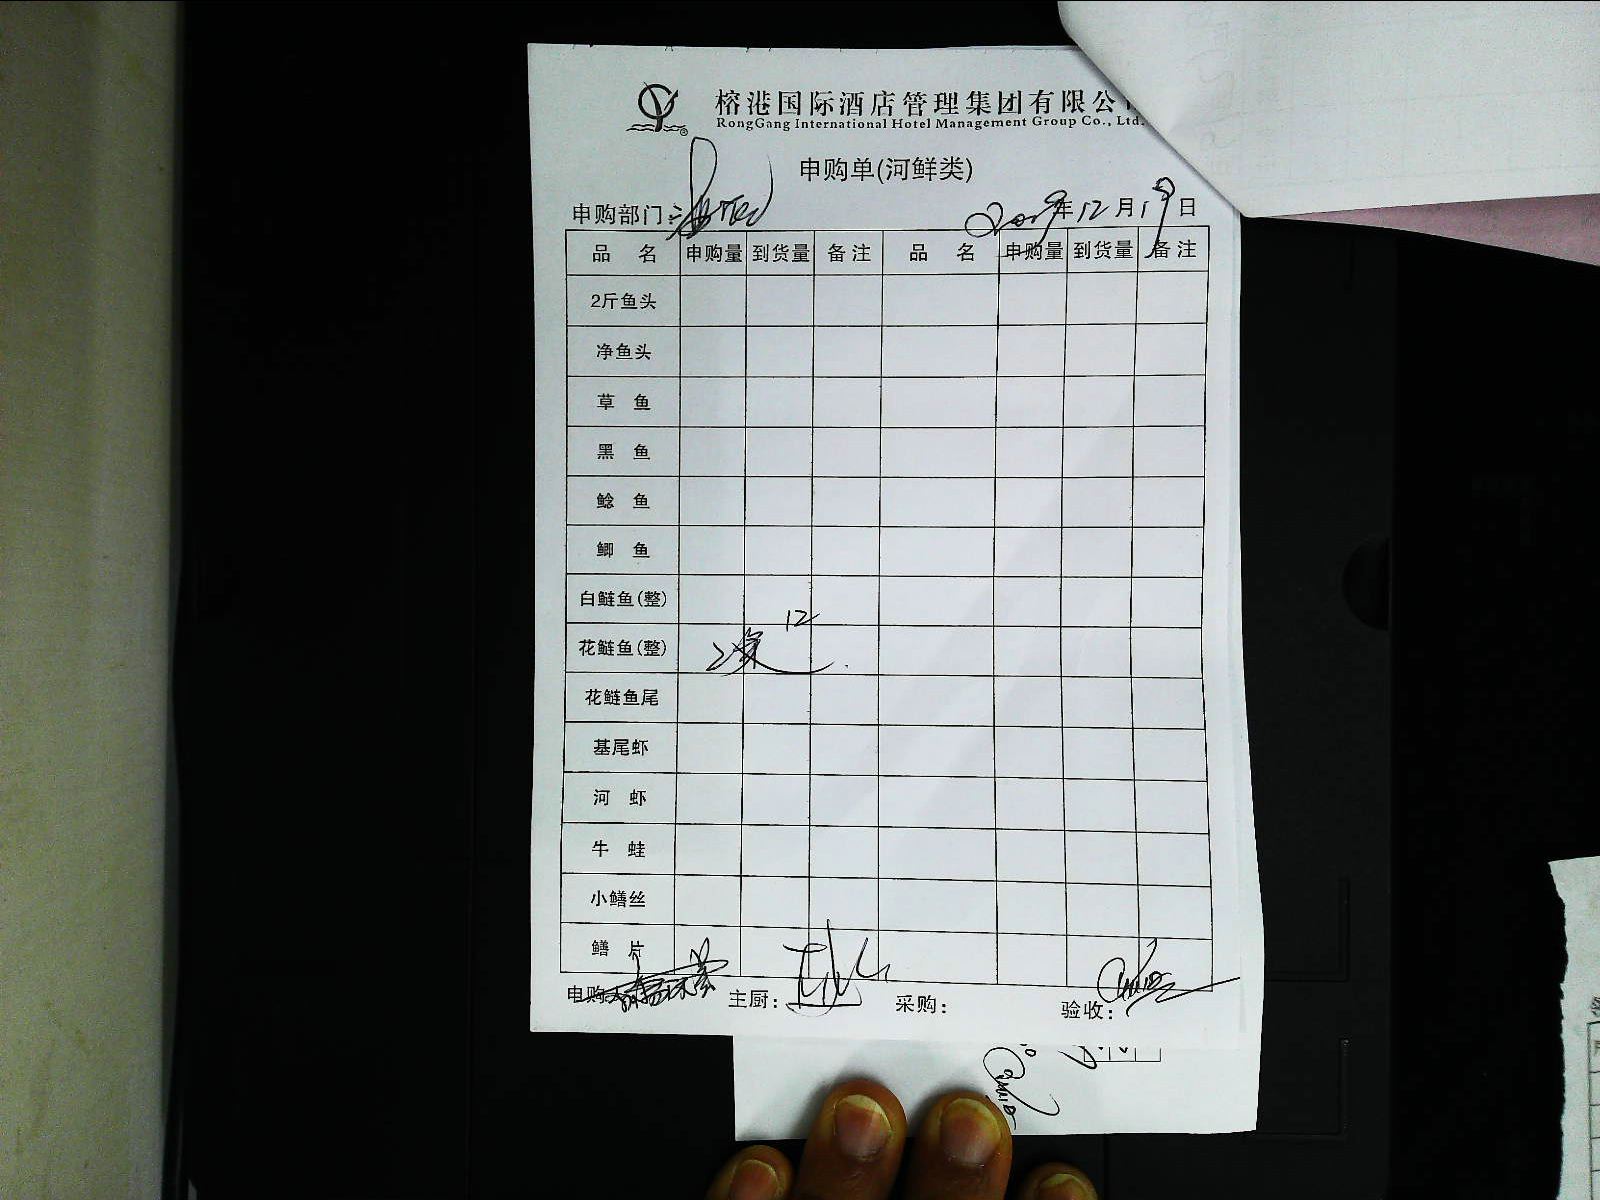 榕港国际酒店管理集团有限公
RongGang International Hotel Management Group Co., Ltd.
申购单(河鲜类)
申购部门: 2019年12月19日
品 名 申购量 到货量 备注 品 名 申购量 到货量 备注
2斤鱼头
净鱼头
草 鱼
黑 鱼
鲶 鱼
鲫 鱼
白鲢鱼(整)
12
花鲢鱼(整) 2条
花鲢鱼尾
基尾虾
河 虾
牛 蛙
小鳝丝
鳝 片
申购 主厨: 采购: 验收: